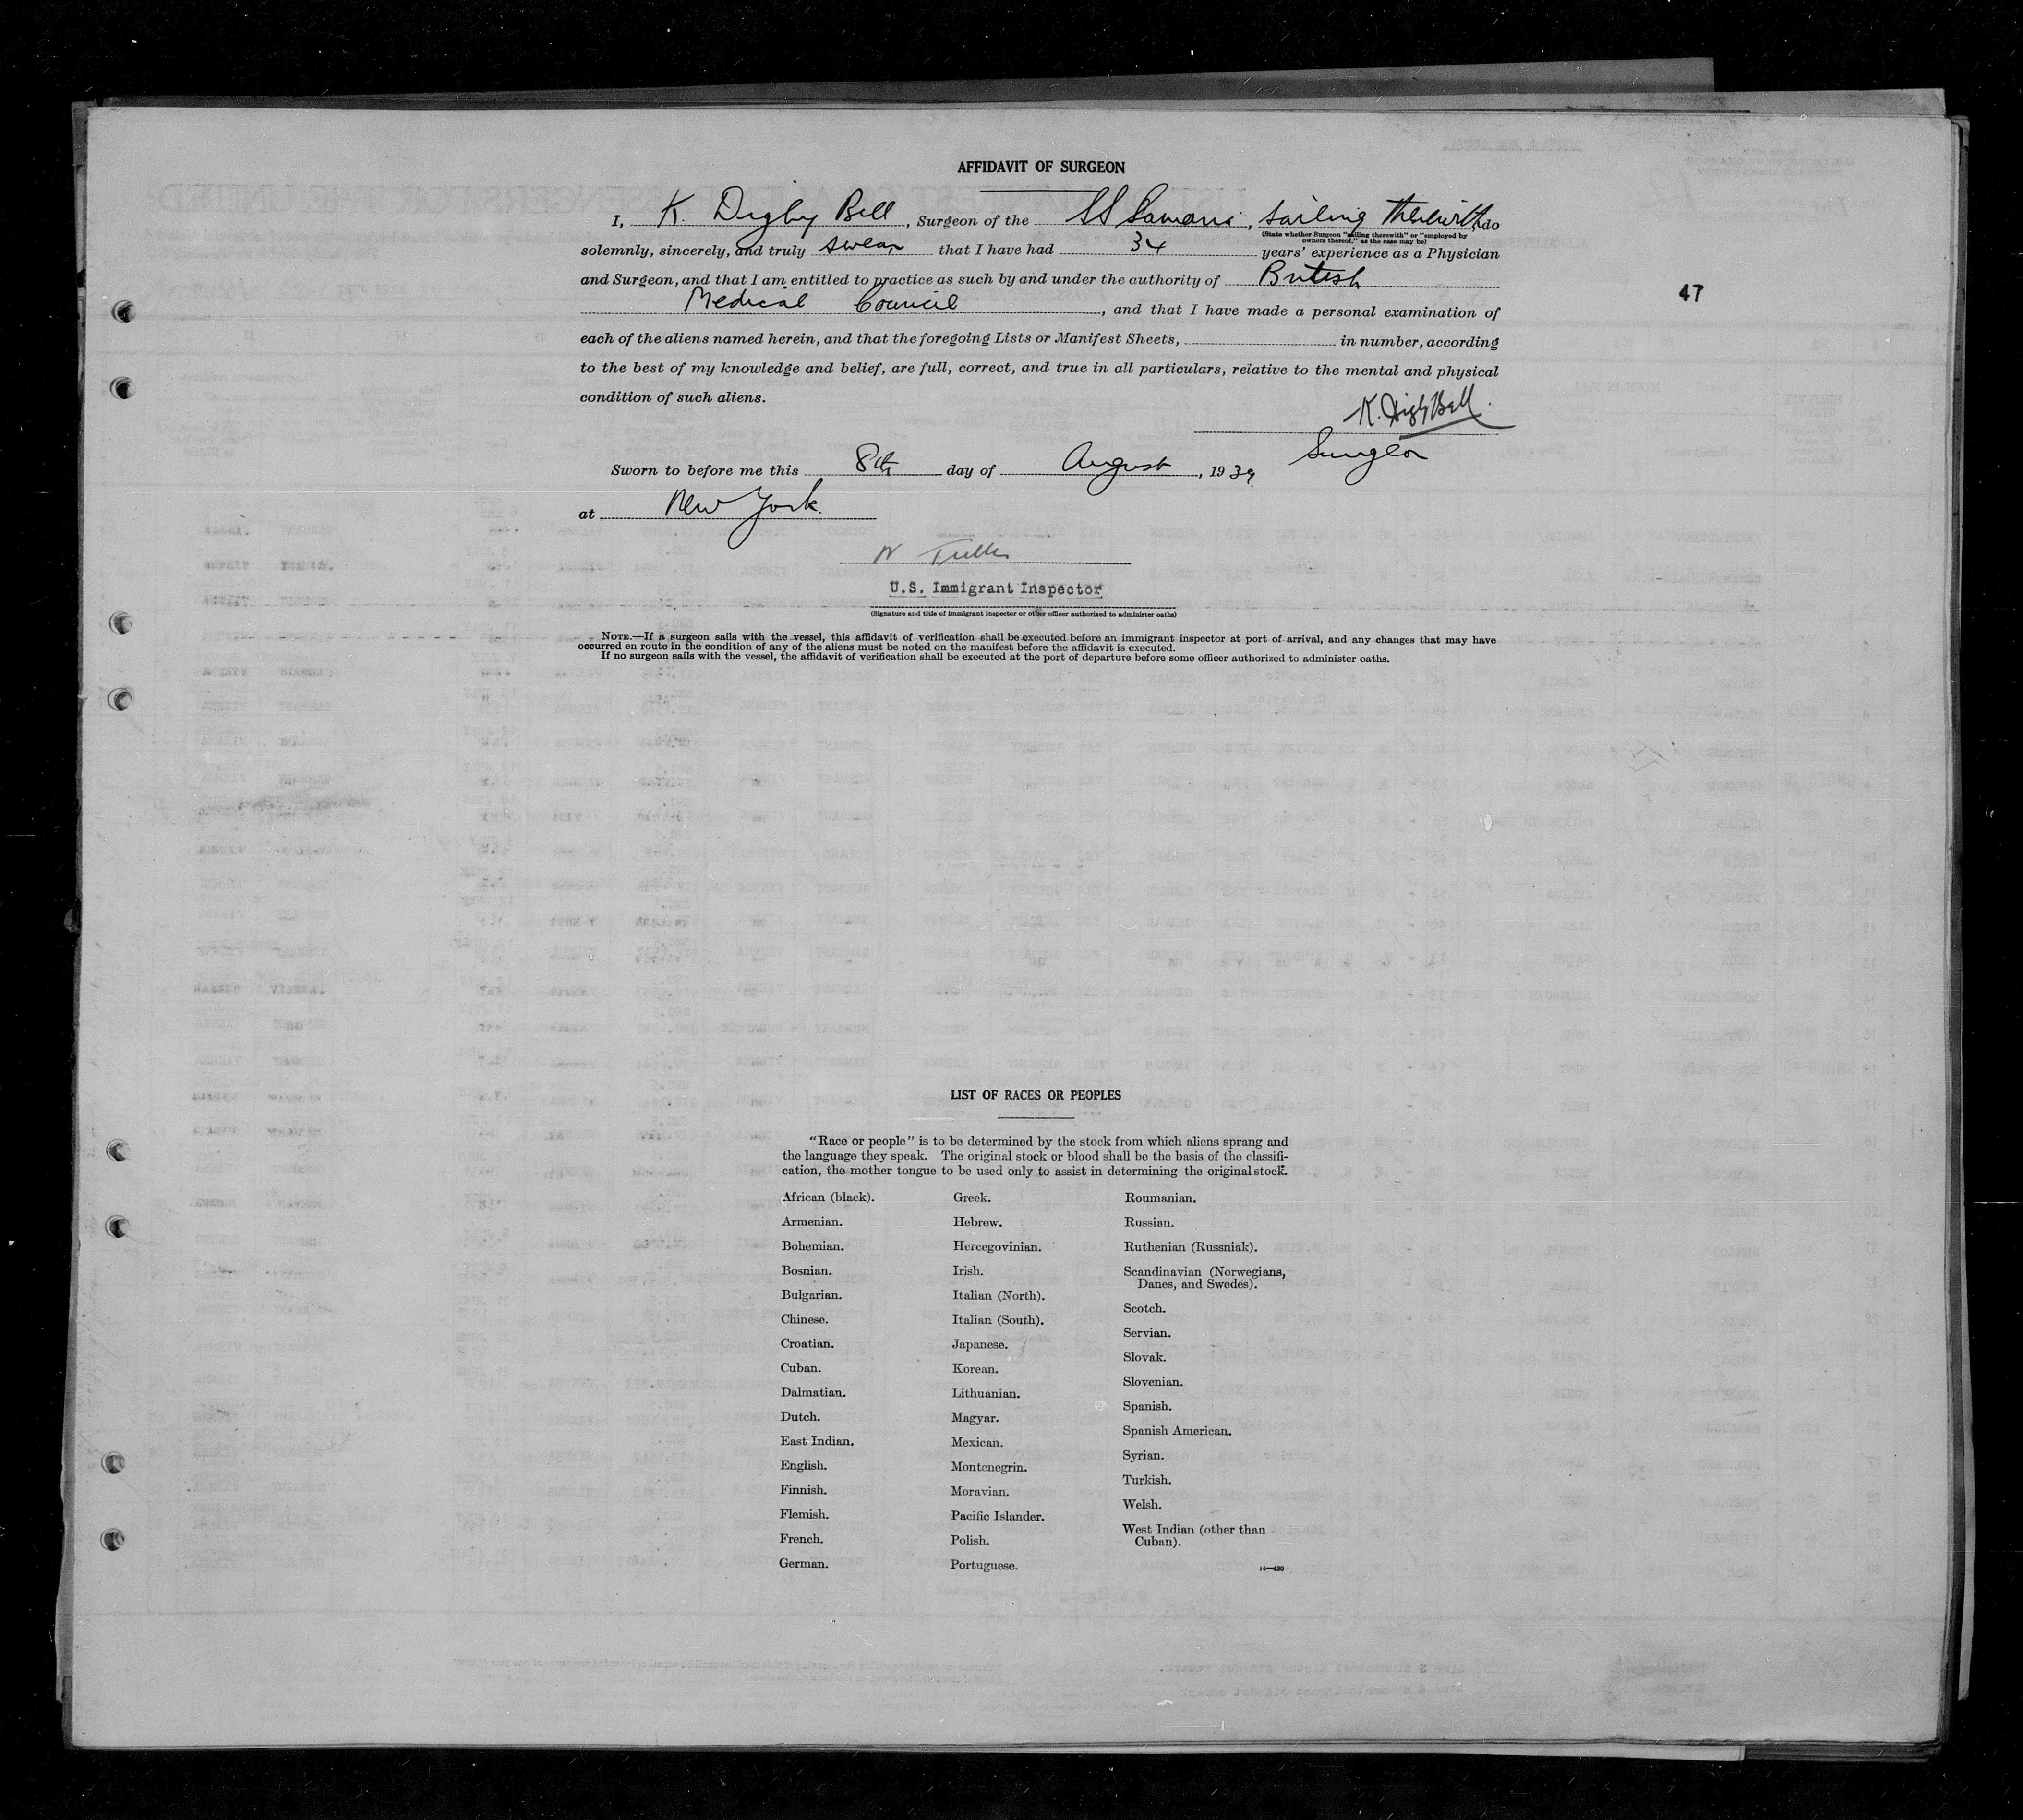 AFFIDAVIT OF SURGEON
I, K. Digby Bell, Surgeon of the SS Samaria, sailing therewith, do
(State whether Surgeon "sailing therewith" or "employed by
owners thereof," as the case may be)
solemnly, sincerely, and truly swear that I have had 34 years' experience as a Physician
and Surgeon, and that I am entitled to practice as such by and under the authority of British
Medical Council, and that I have made a personal examination of
47
each of the aliens named herein, and that the foregoing Lists or Manifest Sheets, in number, according
to the best of my knowledge and belief, are full, correct, and true in all particulars, relative to the mental and physical
condition of such aliens.
K. Digby Bell.
Surgeon
Sworn to before me this 8th day of August, 1939
at New York.
U.S. Immigrant Inspector
(Signature and title of immigrant inspector or other officer authorized to administer oaths)
NOTE.—If a surgeon sails with the vessel, this affidavit of verification shall be executed before an immigrant inspector at port of arrival, and any changes that may have
occurred en route in the condition of any of the aliens must be noted on the manifest before the affidavit is executed.
If no surgeon sails with the vessel, the affidavit of verification shall be executed at the port of departure before some officer authorized to administer oaths.
LIST OF RACES OR PEOPLES
"Race or people" is to be determined by the stock from which aliens sprang and
the language they speak. The original stock or blood shall be the basis of the classifi-
cation, the mother tongue to be used only to assist in determining the original stock.
African (black).
Armenian.
Bohemian.
Bosnian.
Bulgarian.
Chinese.
Croatian.
Cuban.
Dalmatian.
Dutch.
East Indian.
English.
Finnish.
Flemish.
French.
German.
Greek.
Hebrew.
Hercegovinian.
Irish.
Italian (North).
Italian (South).
Japanese.
Korean.
Lithuanian.
Magyar.
Mexican.
Montenegrin.
Moravian.
Pacific Islander.
Polish.
Portuguese.
Roumanian.
Russian.
Ruthenian (Russniak).
Scandinavian (Norwegians,
Danes, and Swedes).
Scotch.
Servian.
Slovak.
Slovenian.
Spanish.
Spanish American.
Syrian.
Turkish.
Welsh.
West Indian (other than
Cuban).